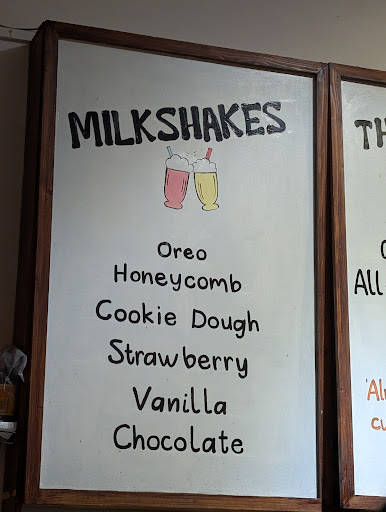 MILKSHAKES
Oreo
Honeycomb
Cookie Dough
Strawberry
Vanilla
Chocolate
TH
All